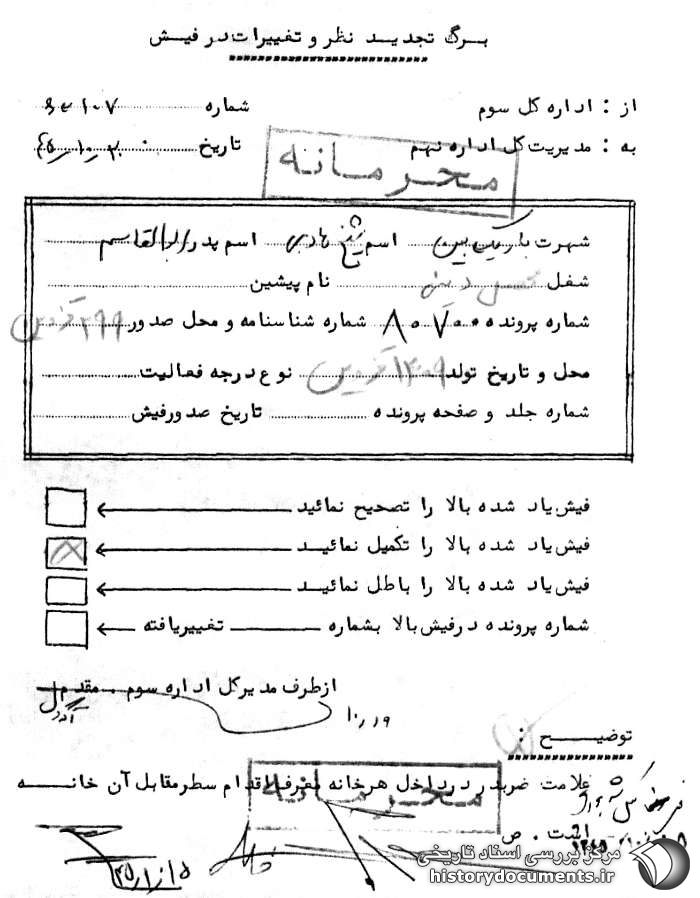 برگ تجدید نظر و تغییرات در فیش
از : اداره کل سوم شماره
به : مدیریت کل اداره نهم تاریخ
محرمانه
شهرت باریک بین اسم شیخ هادی اسم پدر ابوالقاسم
شغل محصل دینی نام پیشین
شماره پرونده ۸۰۷۰۰ شماره شناسنامه و محل صدور ۲۹۹ قزوین
محل و تاریخ تولد ۱۳۰۹ قزوین نوع درجه فعالیت
شماره جلد و صفحه پرونده تاریخ صدور فیش
فیش یاد شده بالا را تصحیح نمائید
فیش یاد شده بالا را تکمیل نمائید
فیش یاد شده بالا را باطل نمائید
شماره پرونده در فیش بالا بشماره تغییر یافته
از طرف مدیر کل اداره سوم . مقدم
توضیح :
علامت ضربدر در داخل هر خانه معرف اقدام سطر مقابل آن خانه
محرمانه
است . ص
مرکز بررسی اسناد تاریخی
historydocuments.ir